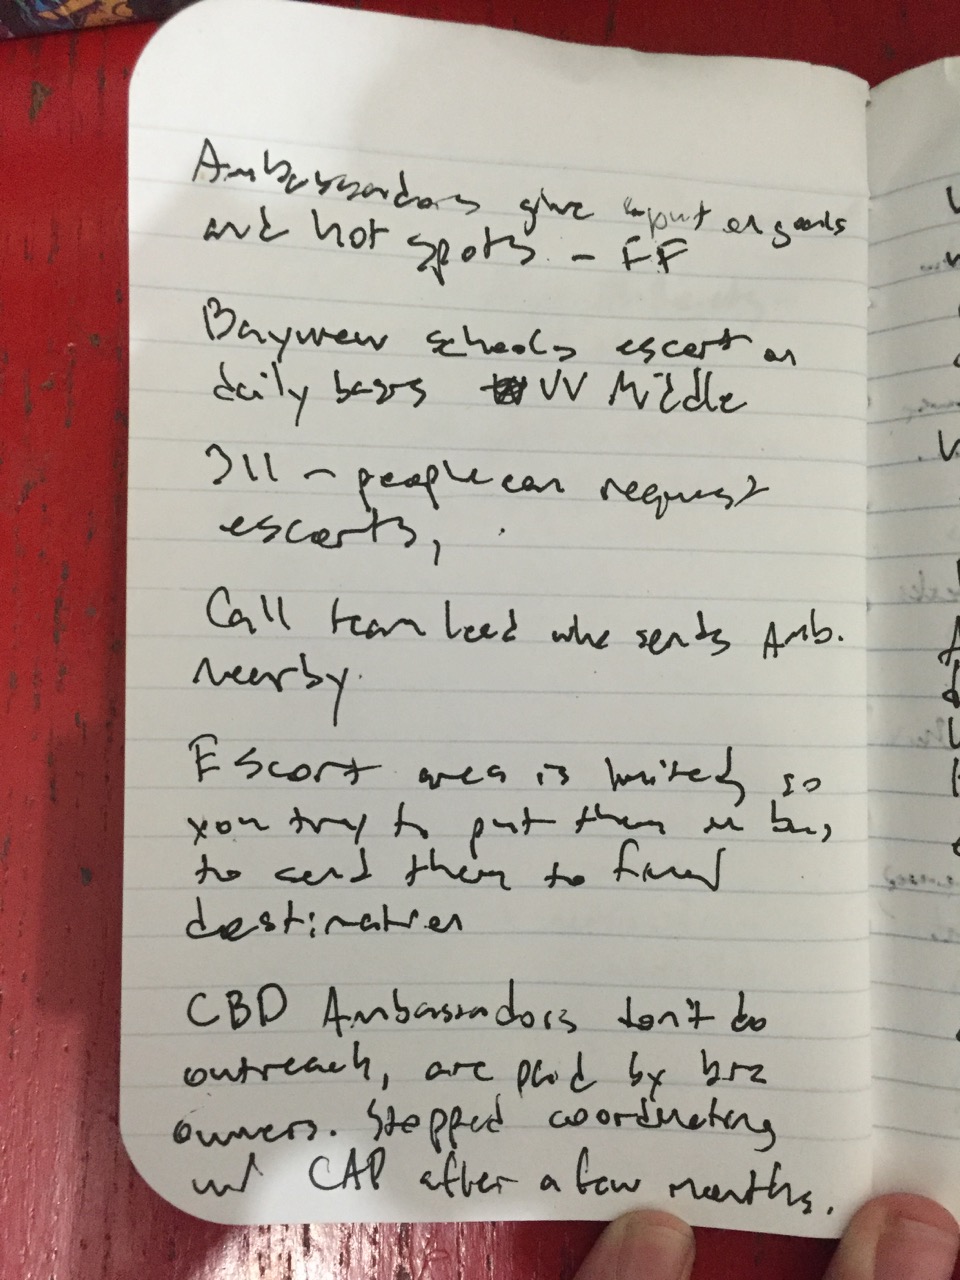 Ambassadors give input on goals
and hot spots. - FF
Bayview schools escort on
daily bases VV Middle
311 - people can request
escorts,
Call team lead who sends Amb.
nearby.
Escort area is limited, so
you try to put them in bus,
to send them to final
destination
CBD Ambassadors don't do
outreach, are paid by biz
owners. Stopped coordinating
w/ CAP after a few months.